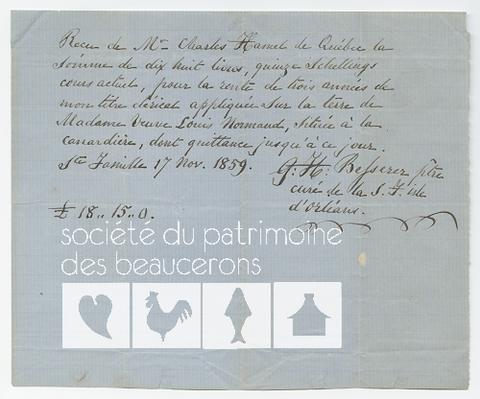 Recu de Mr Charles Hamel de Québec la
somme de dix huit livres, quinze Schellings
cours actuel, pour la rente de trois années de
mon titre clérical appliquée sur la terre de
Madame Veuve Louis Normand, située à la
canardière, dont quittance jusqu'à ce jour.
Ste Famille 17 Nov. 1859.
G: H: Besserer ptre
curé de la S. F. isle
d'orléans.
£ 18.. 15.. 0.
société du patrimoine
des beaucerons